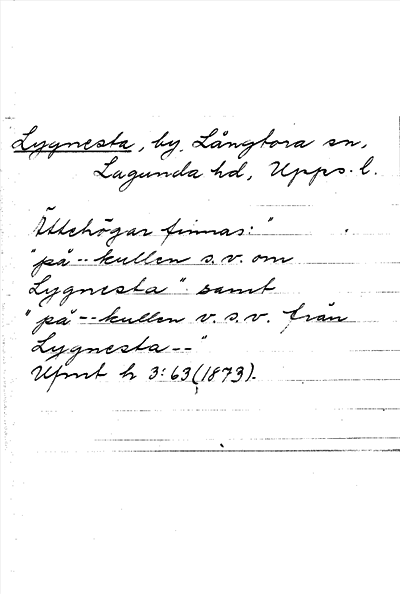 Lygnesta, by, Långtora sn,
Lagunda hd, Upps. l.
Ättehögar finnas: "
"på -- kullen s.v. om
Lygnesta" samt
"på -- kullen v.s.v. från
Lygnesta -- "
Ufmt h 3:63 (1873).